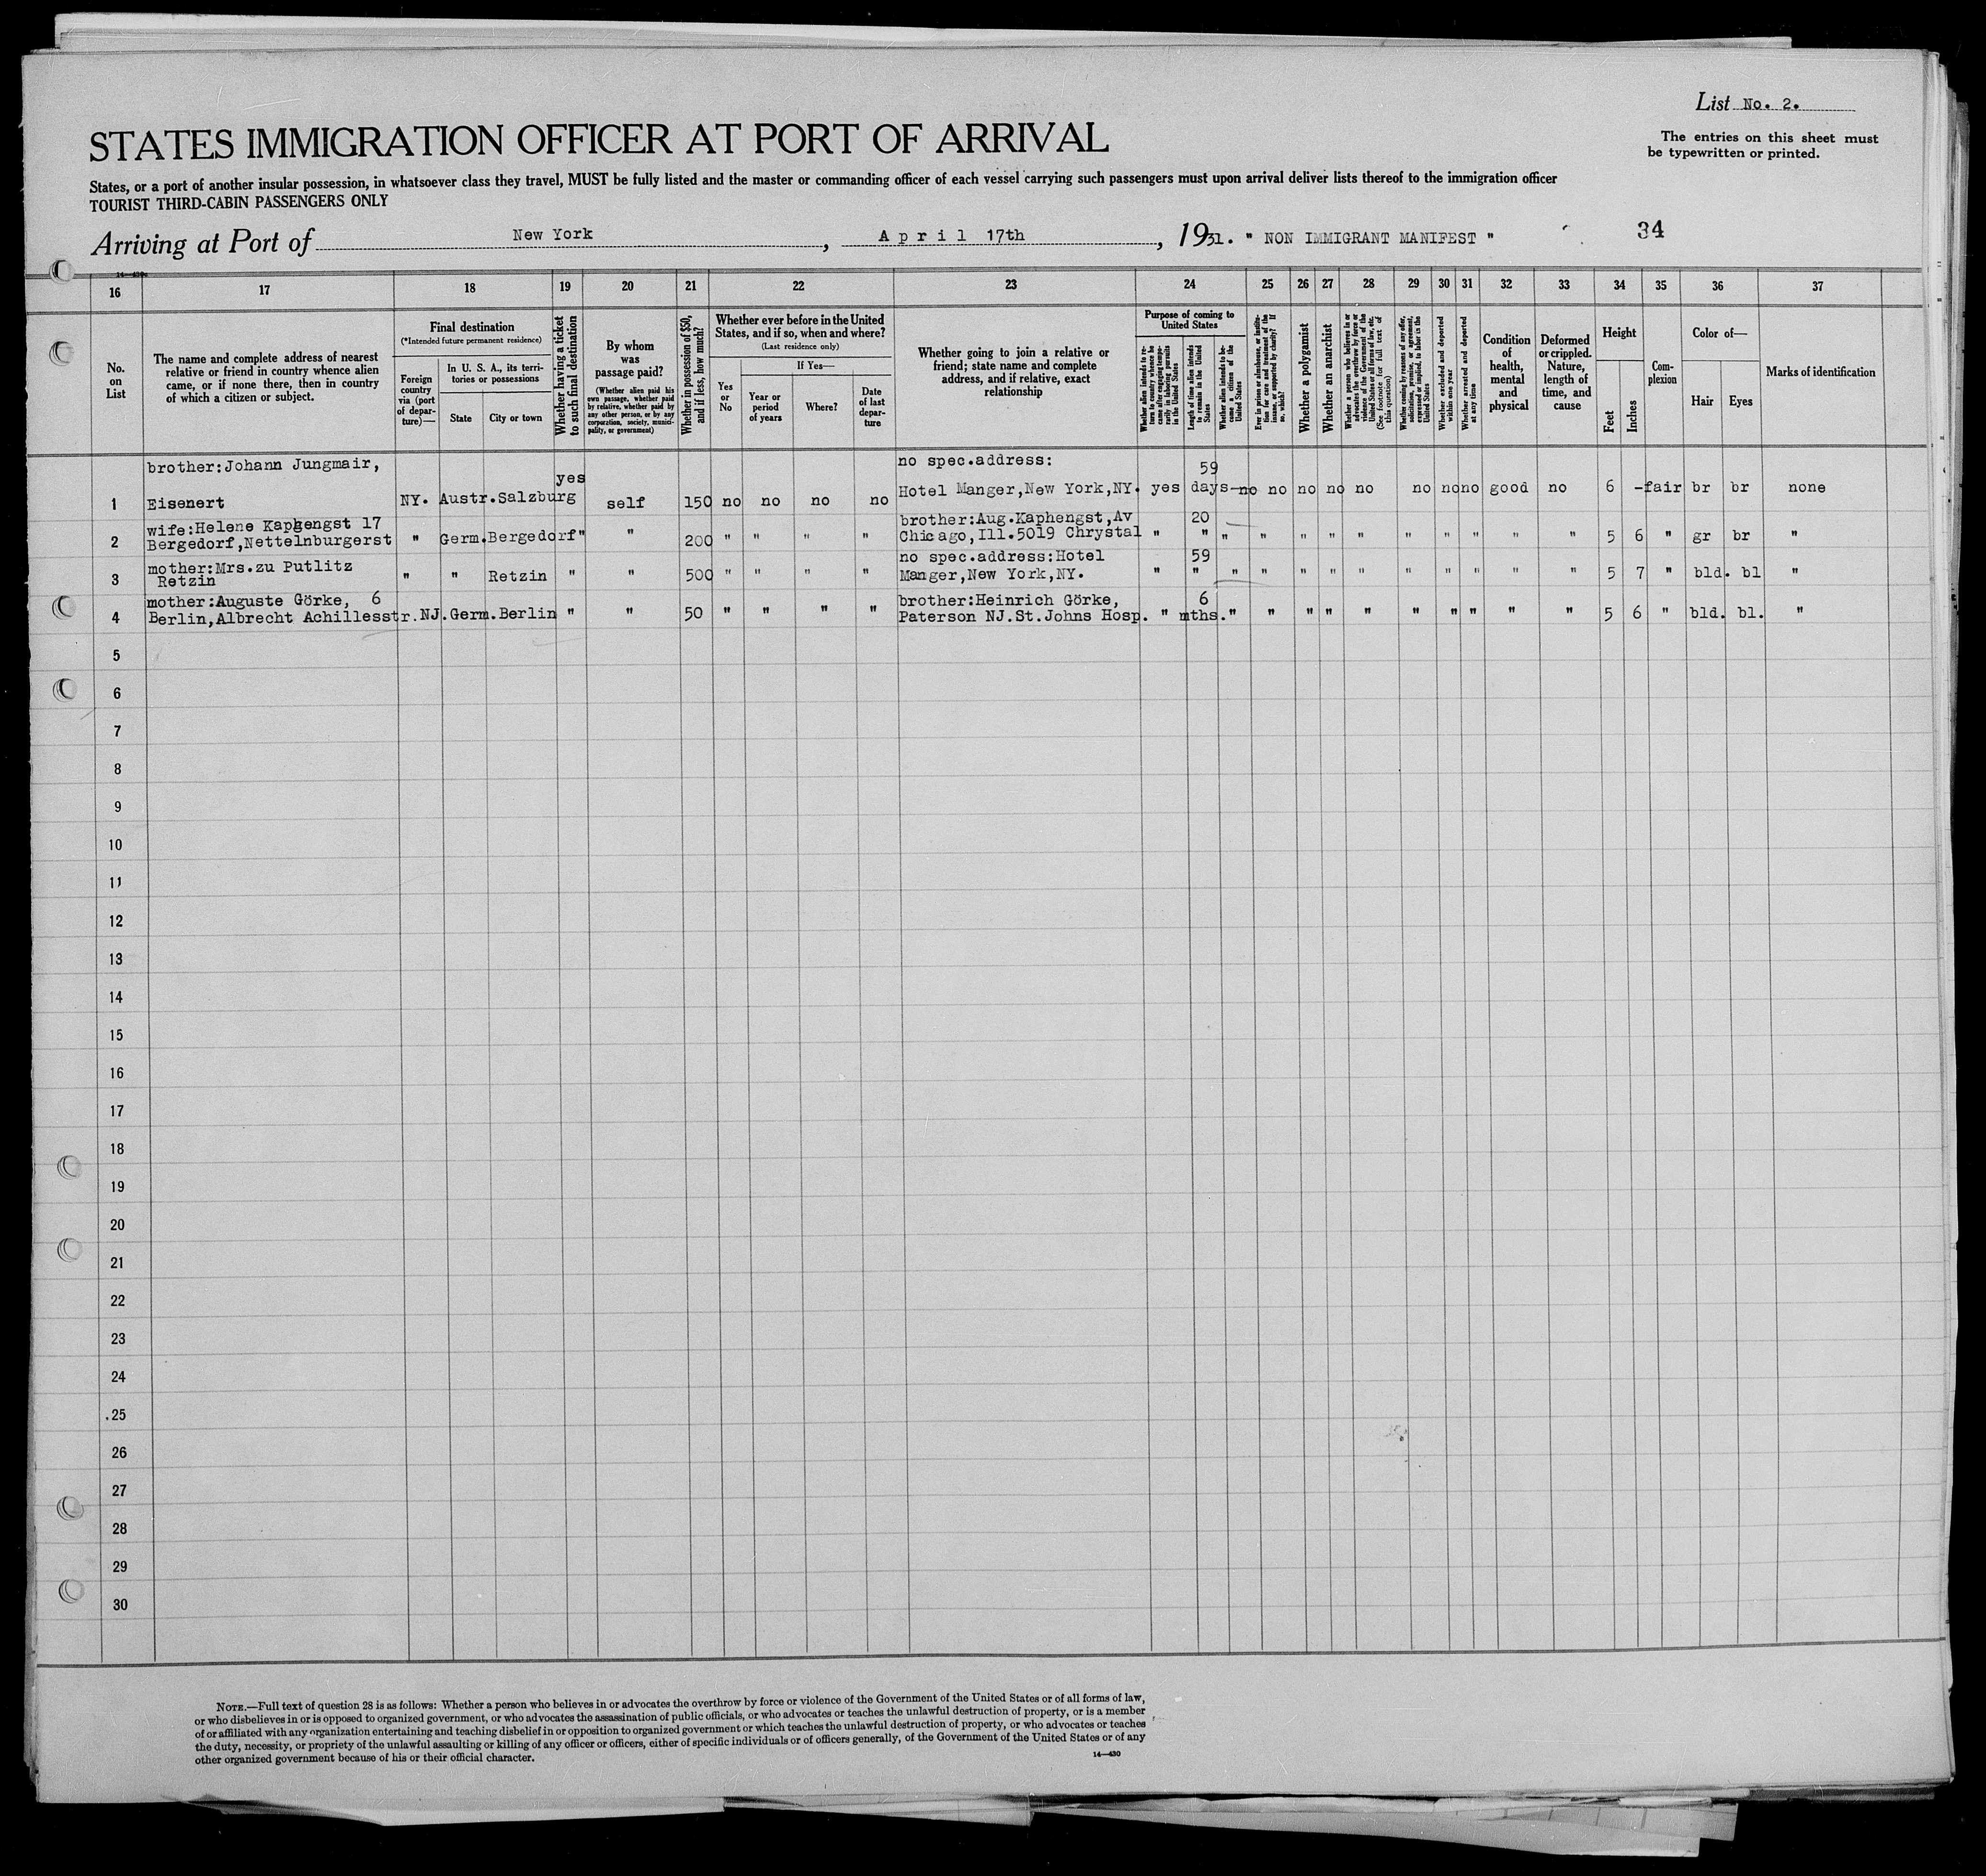 List No. 2.
The entries on this sheet must
be typewritten or printed.
STATES IMMIGRATION OFFICER AT PORT OF ARRIVAL
States, or a port of another insular possession, in whatsoever class they travel, MUST be fully listed and the master or commanding officer of each vessel carrying such passengers must upon arrival deliver lists thereof to the immigration officer
TOURIST THIRD-CABIN PASSENGERS ONLY
Arriving at Port of New York, April 17th, 1931. " NON IMMIGRANT MANIFEST " 34
14—430
16 17 18 19 20 21 22 23 24 25 26 27 28 29 30 31 32 33 34 35 36 37
No.
on
List
The name and complete address of nearest
relative or friend in country whence alien
came, or if none there, then in country
of which a citizen or subject.
Final destination
(*Intended future permanent residence)
Foreign
country
via (port
of depar-
ture)—
In U. S. A., its terri-
tories or possessions
State
City or town
Whether having a ticket
to such final destination
By whom
was
passage paid?
(Whether alien paid his
own passage, whether paid
by relative, whether paid by
any other person, or by any
corporation, society, munici-
pality, or government)
Whether in possession of $50,
and if less, how much?
Whether ever before in the United
States, and if so, when and where?
(Last residence only)
Yes
or
No
If Yes—
Year or
period
of years
Where?
Date
of last
depar-
ture
Whether going to join a relative or
friend; state name and complete
address, and if relative, exact
relationship
Purpose of coming to
United States
Whether alien intends to re-
turn to country whence he
came after engaging tempo-
rarily in laboring pursuits
in the United States
Length of time alien intends
to remain in the United
States
Whether alien intends to be-
come a citizen of the
United States
Ever in prison or almshouse, or institu-
tion for care and treatment of the
insane, or supported by charity? If
so, which?
Whether a polygamist
Whether an anarchist
Whether a person who believes in or
advocates the overthrow by force or
violence of the Government of the
United States or all forms of law, etc.
(See footnote for full text of
this question)
Whether coming by reason of any offer,
solicitation, promise, or agreement,
expressed or implied, to labor in the
United States
Whether excluded and deported
within one year
Whether arrested and deported
at any time
Condition
of
health,
mental
and
physical
Deformed
or crippled.
Nature,
length of
time, and
cause
Height
Feet
Inches
Com-
plexion
Color of—
Hair
Eyes
Marks of identification
brother:Johann Jungmair, yes no spec.address: 59
1 Eisenert NY. Austr.Salzburg self 150 no no no no Hotel Manger,New York,NY. yes days—no no no no no no no no good no 6 - fair br br none
wife:Helene Kaphengst 17 brother:Aug.Kaphengst,Av 20
2 Bergedorf,Nettelnburgerst " Germ.Bergedorf " " 200 " " " " Chicago,Ill.5019 Chrystal " " " " " " " " " " " " 5 6 " gr br "
mother:Mrs.zu Putlitz no spec.address:Hotel 59
3 Retzin " " Retzin " " 500 " " " " Manger,New York,NY. " " " " " " " " " " " " 5 7 " bld. bl "
mother:Auguste Görke, 6 brother:Heinrich Görke, 6
4 Berlin,Albrecht Achillesstr.NJ.Germ.Berlin " " 50 " " " " Paterson NJ.St.Johns Hosp. " mths. " " " " " " " " " " 5 6 " bld. bl. "
5
6
7
8
9
10
11
12
13
14
15
16
17
18
19
20
21
22
23
24
25
26
27
28
29
30
NOTE.—Full text of question 28 is as follows: Whether a person who believes in or advocates the overthrow by force or violence of the Government of the United States or of all forms of law,
or who disbelieves in or is opposed to organized government, or who advocates the assassination of public officials, or who advocates or teaches the unlawful destruction of property, or is a member
of or affiliated with any organization entertaining and teaching disbelief in or opposition to organized government or which teaches the unlawful destruction of property, or who advocates or teaches
the duty, necessity, or propriety of the unlawful assaulting or killing of any officer or officers, either of specific individuals or of officers generally, of the Government of the United States or of any
other organized government because of his or their official character.
14—430